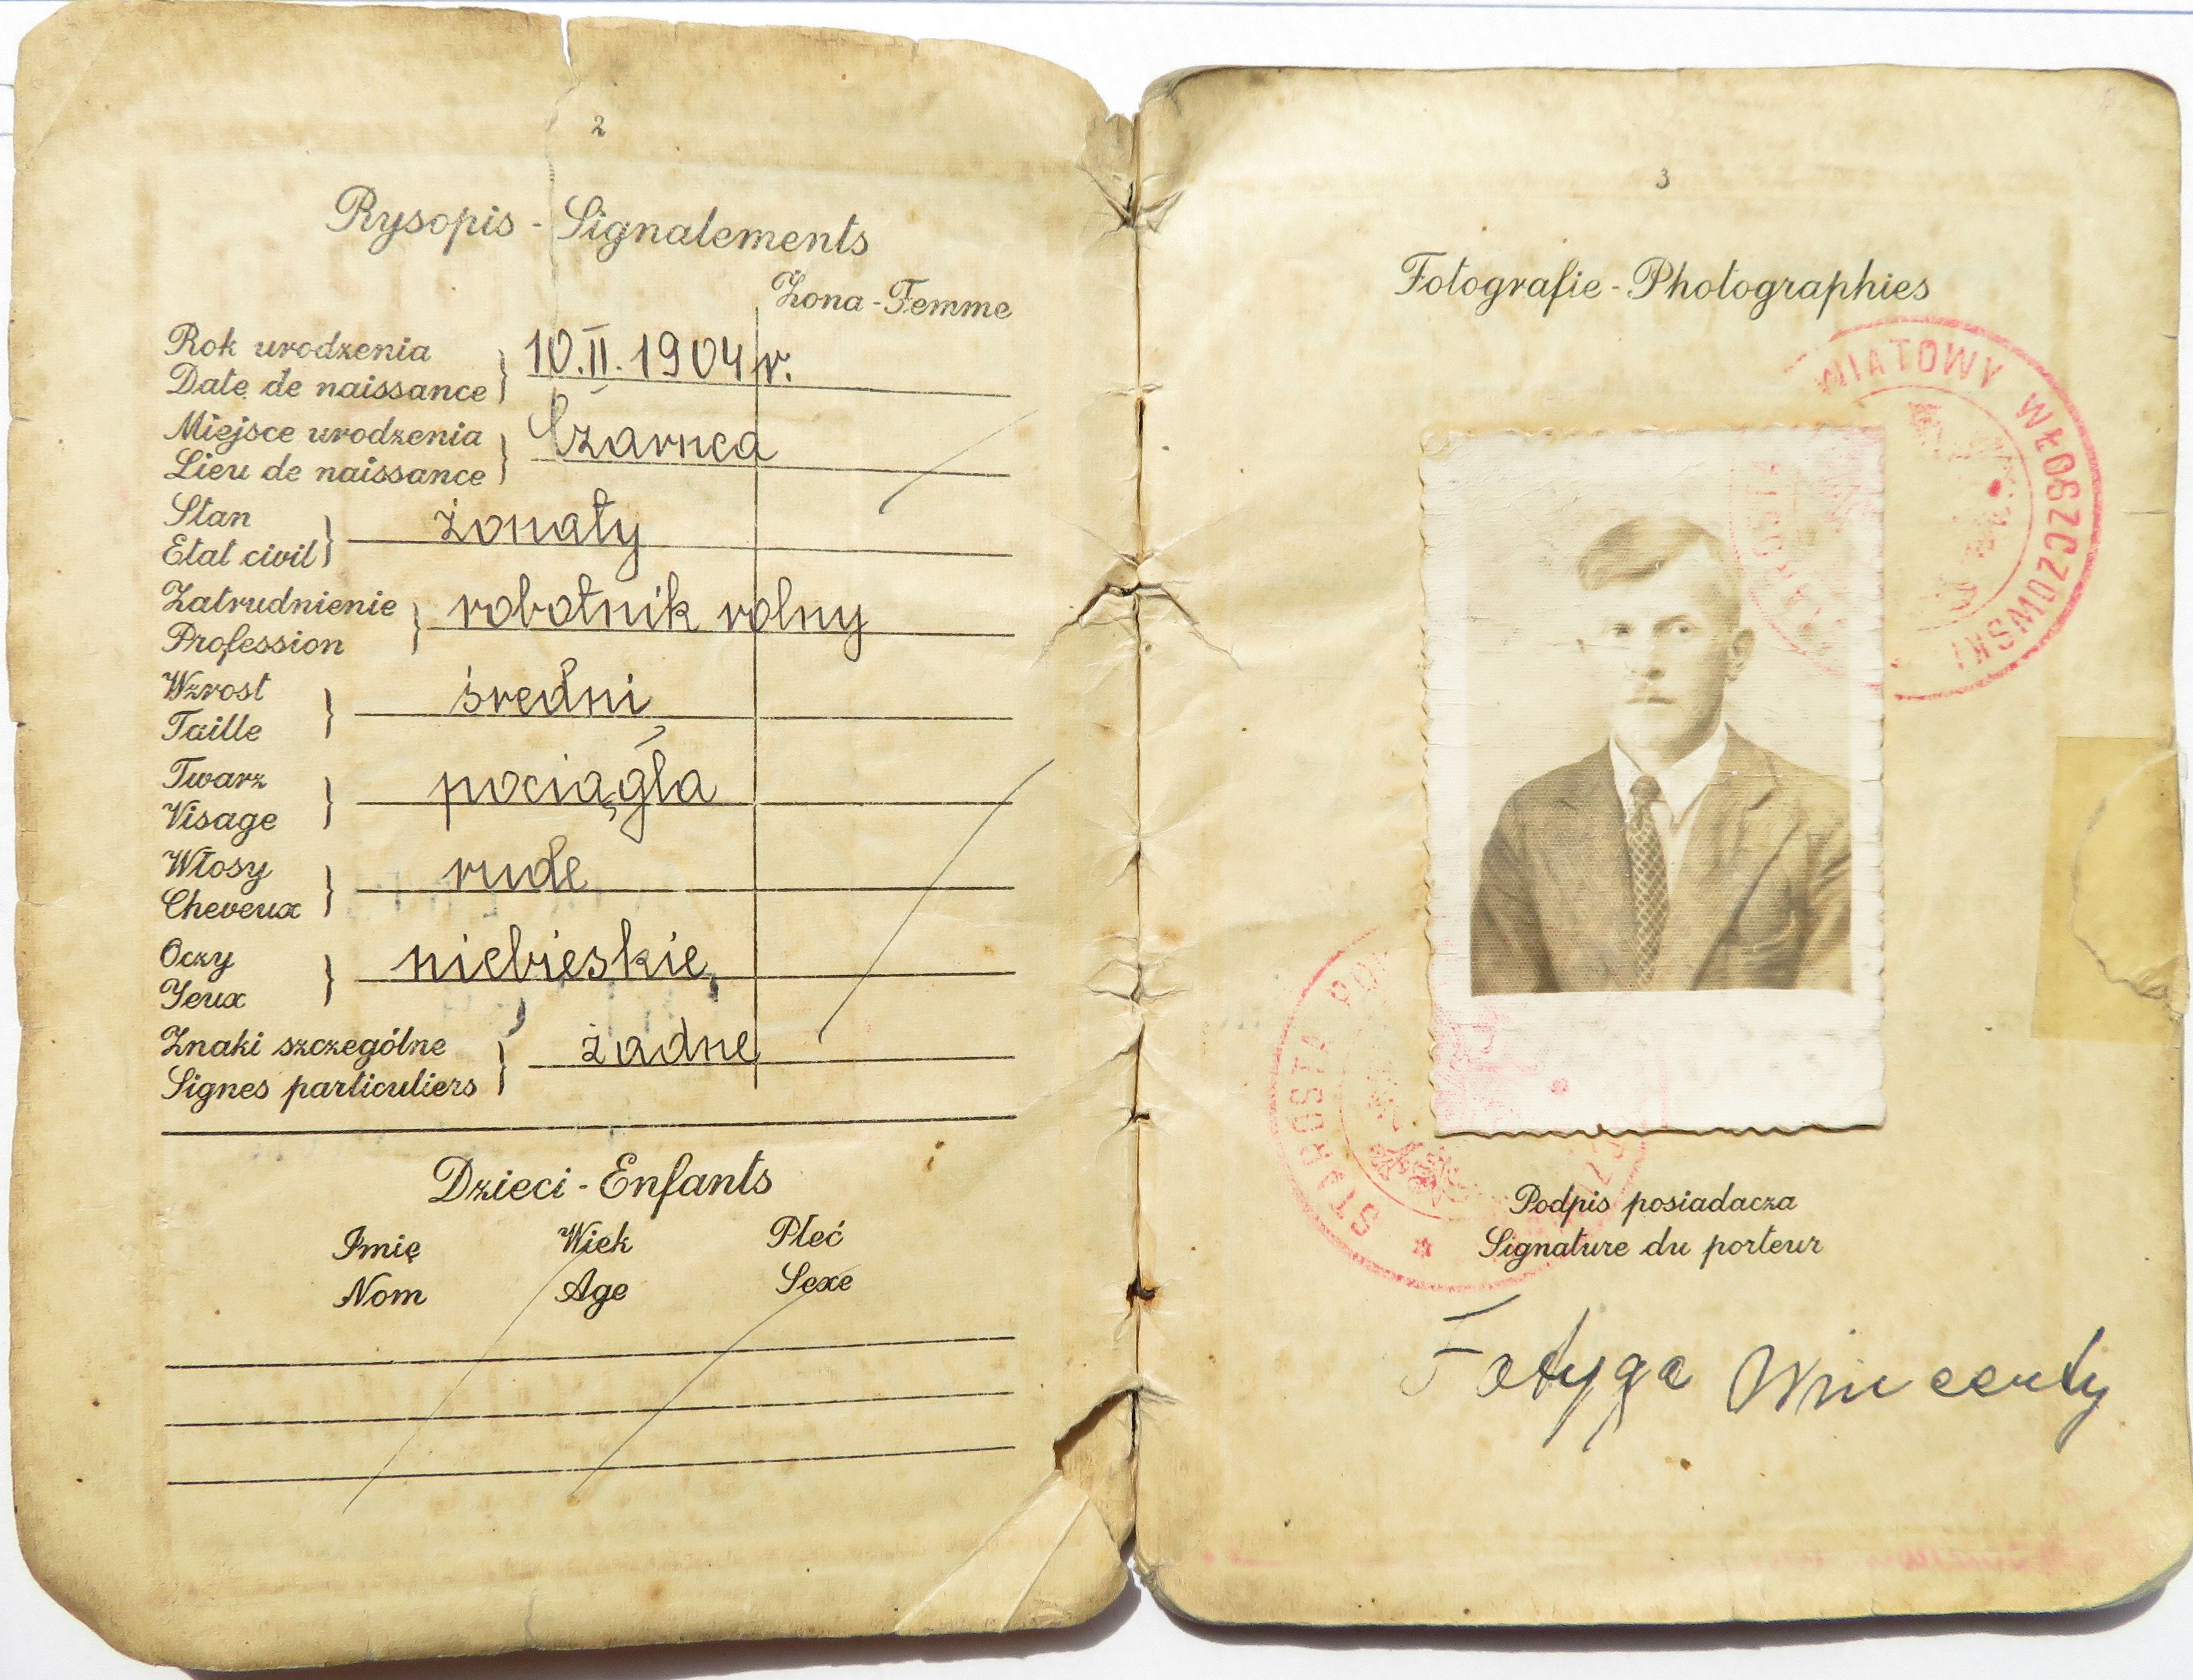 2
Rysopis - Signalements
Żona - Femme
Rok urodzenia
Date de naissance
10.II.1904 r.
Miejsce urodzenia
Lieu de naissance
Czarnca
Stan
Etat civil
żonaty
Zatrudnienie
Profession
robotnik rolny
Wzrost
Taille
średni
Twarz
Visage
pociągła
Włosy
Cheveux
rude
Oczy
Yeux
niebieskie
Znaki szczególne
Signes particuliers
żadne
Dzieci - Enfants
Imię Wiek Płeć
Nom Age Sexe
3
Fotografie - Photographies
WIATOWY WŁOSZCZOWSKI
STAROSTA PO
Podpis posiadacza
Signature du porteur
Fatyga Wincenty